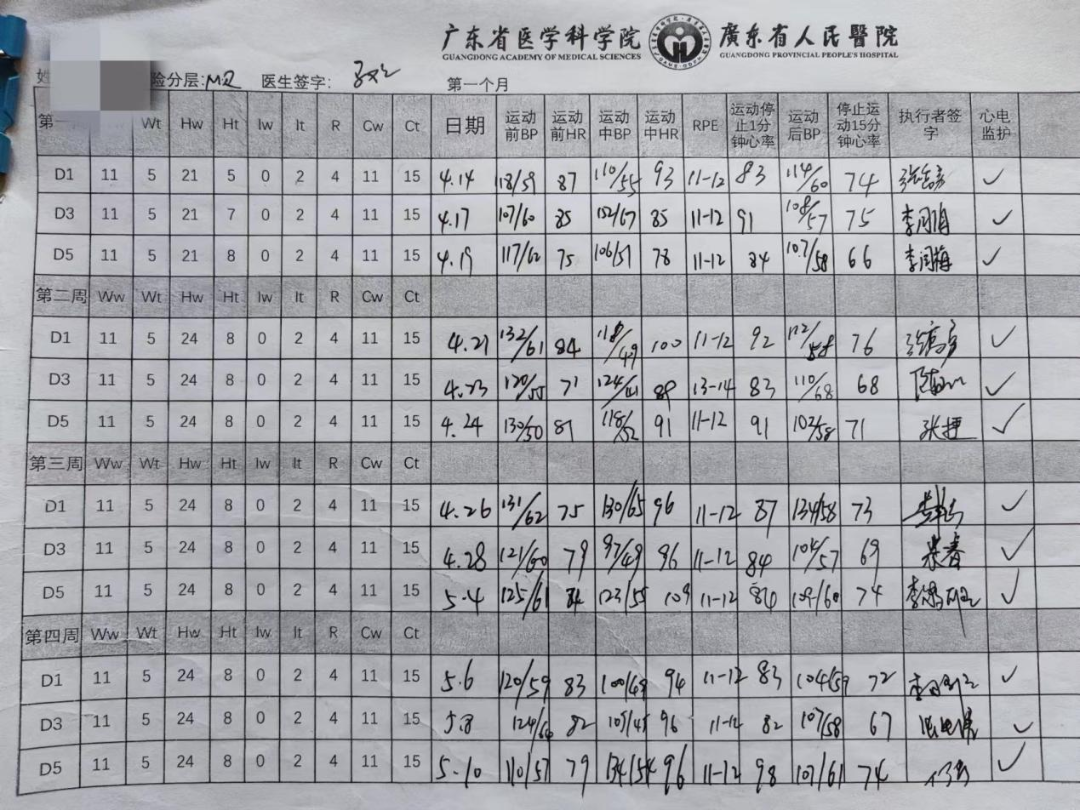 广东省医学科学院 廣东省人民醫院
GUANGDONG ACADEMY OF MEDICAL SCIENCES GUANGDONG PROVINCIAL PEOPLE'S HOSPITAL
险分层: 医生签字: 第一个月
第一 Ww Wt Hw Ht Iw It R Cw Ct 日期 运动前BP 运动前HR 运动中BP 运动中HR RPE 运动停止1分钟心率 运动后BP 停止运动15分钟心率 执行者签字 心电监护
D1 11 5 21 5 0 2 4 11 15 4.14 118/59 87 110/55 93 11-12 83 114/60 74 ✓
D3 11 5 21 7 0 2 4 11 15 4.17 107/60 85 152/67 85 11-12 91 108/57 75 ✓
D5 11 5 21 8 0 2 4 11 15 4.19 117/62 75 106/57 78 11-12 84 107/58 66 ✓
第二周 Ww Wt Hw Ht Iw It R Cw Ct
D1 11 5 24 8 0 2 4 11 15 4.21 132/61 84 118/49 100 11-12 92 112/58 76 ✓
D3 11 5 24 8 0 2 4 11 15 4.23 120/55 71 13-14 83 110/68 68 ✓
D5 11 5 24 8 0 2 4 11 15 4.24 130/50 81 118/52 91 11-12 91 102/58 71 张捷 ✓
第三周 Ww Wt Hw Ht Iw It R Cw Ct
D1 11 5 24 8 0 2 4 11 15 4.26 131/62 75 130/65 96 11-12 87 134/58 73 ✓
D3 11 5 24 8 0 2 4 11 15 4.28 121/60 79 97/49 96 11-12 84 104/57 69 ✓
D5 11 5 24 8 0 2 4 11 15 5.4 125/61 84 123/55 109 11-12 84 109/60 74 ✓
第四周 Ww Wt Hw Ht Iw It R Cw Ct
D1 11 5 24 8 0 2 4 11 15 5.6 120/59 83 100/49 94 11-12 83 104/59 72 ✓
D3 11 5 24 8 0 2 4 11 15 5.8 124/60 82 105/45 96 11-12 82 107/58 67 ✓
D5 11 5 24 8 0 2 4 11 15 5.10 110/57 79 134/54 96 11-12 98 107/61 74 ✓